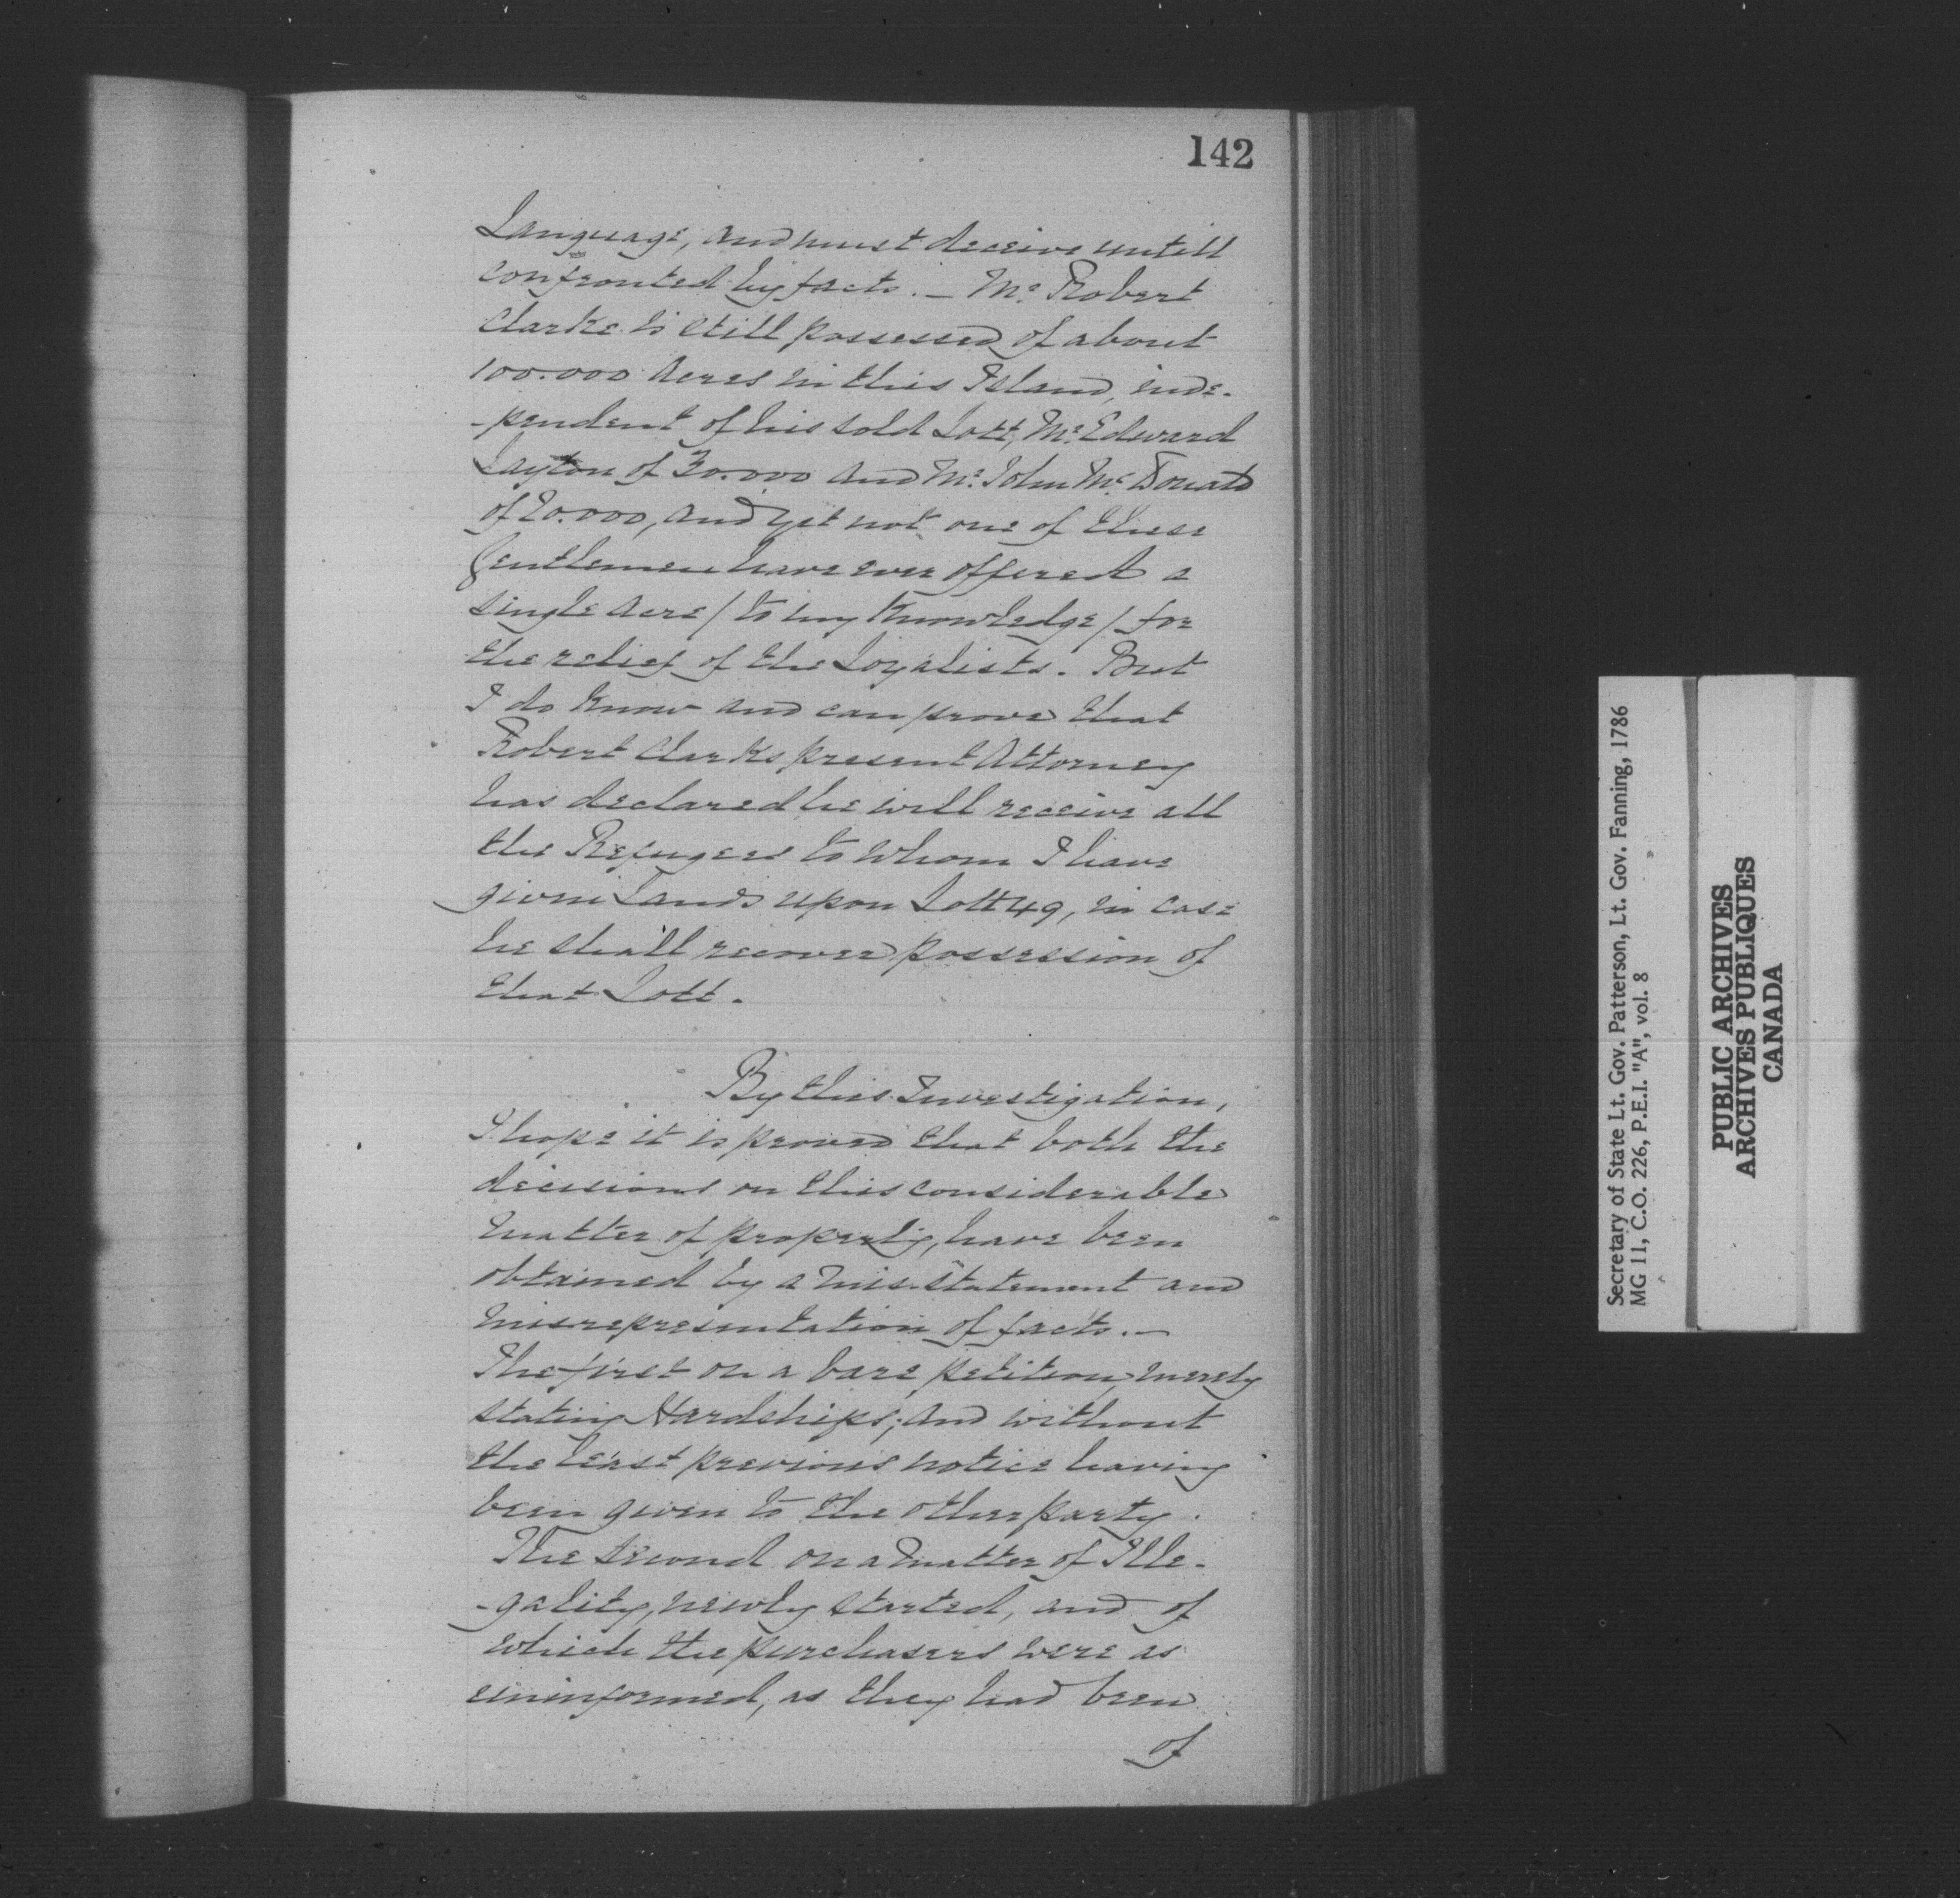 142
Language, and must deceive untill
confronted by facts. — Mr. Robert
Clarke is still possessed of about
100.000 Acres in this Island, inde-
-pendent of his sold Lott, Mr. Edward
Layton of 30.000 and Mr. John Mc. Donald
of 20.000, and yet not one of these
Gentlemen have ever offered a
single Acre / to my Knowledge / for
the relief of the Loyalists. But
I do know and can prove that
Robert Clarks present Attorney
has declared he will receive all
the Refugees to whom I have
given Lands upon Lott 49, in case
he shall recover possession of
that Lott.
By this Investigation,
I hope it is proved that both the
decisions on this considerable
matter of property, have been
obtained by a mis-statement and
misrepresentation of facts. —
The first on a bare petition, merely
stating Hardships; and without
the least previous notice having
been given to the other party.
The second on a matter of Ille-
-gality, newly started, and of
which the purchasers were as
uninformed, as they had been
of
Secretary of State Lt. Gov. Patterson, Lt. Gov. Fanning, 1786
MG 11, C.O. 226, P.E.I. "A", vol. 8
PUBLIC ARCHIVES
ARCHIVES PUBLIQUES
CANADA